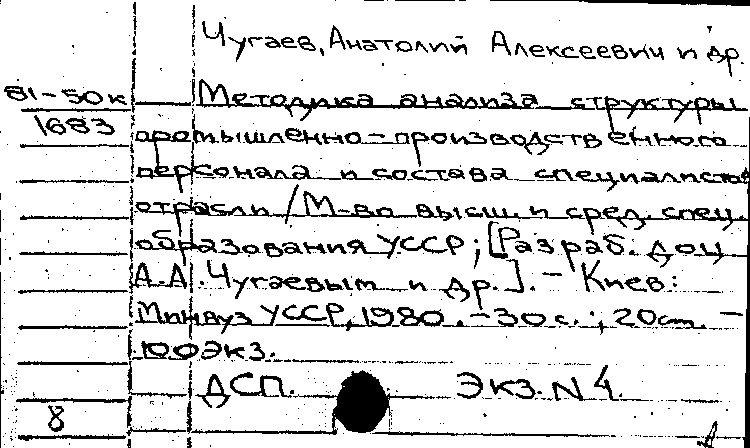 Чугаев, Анатолий Алексеевич и др.
81-50к
1683
Методика анализа структуры
промышленно-производственного
персонала и состава специалистов
отрасли / М-во высш. и сред. спец.
образования УССР; [Разраб. доц.
А.А. Чугаевым и др.]. - Киев:
Минвуз УССР, 1980. - 30 с.; 20 см. -
100 экз.
ДСП. Экз. N 4.
8